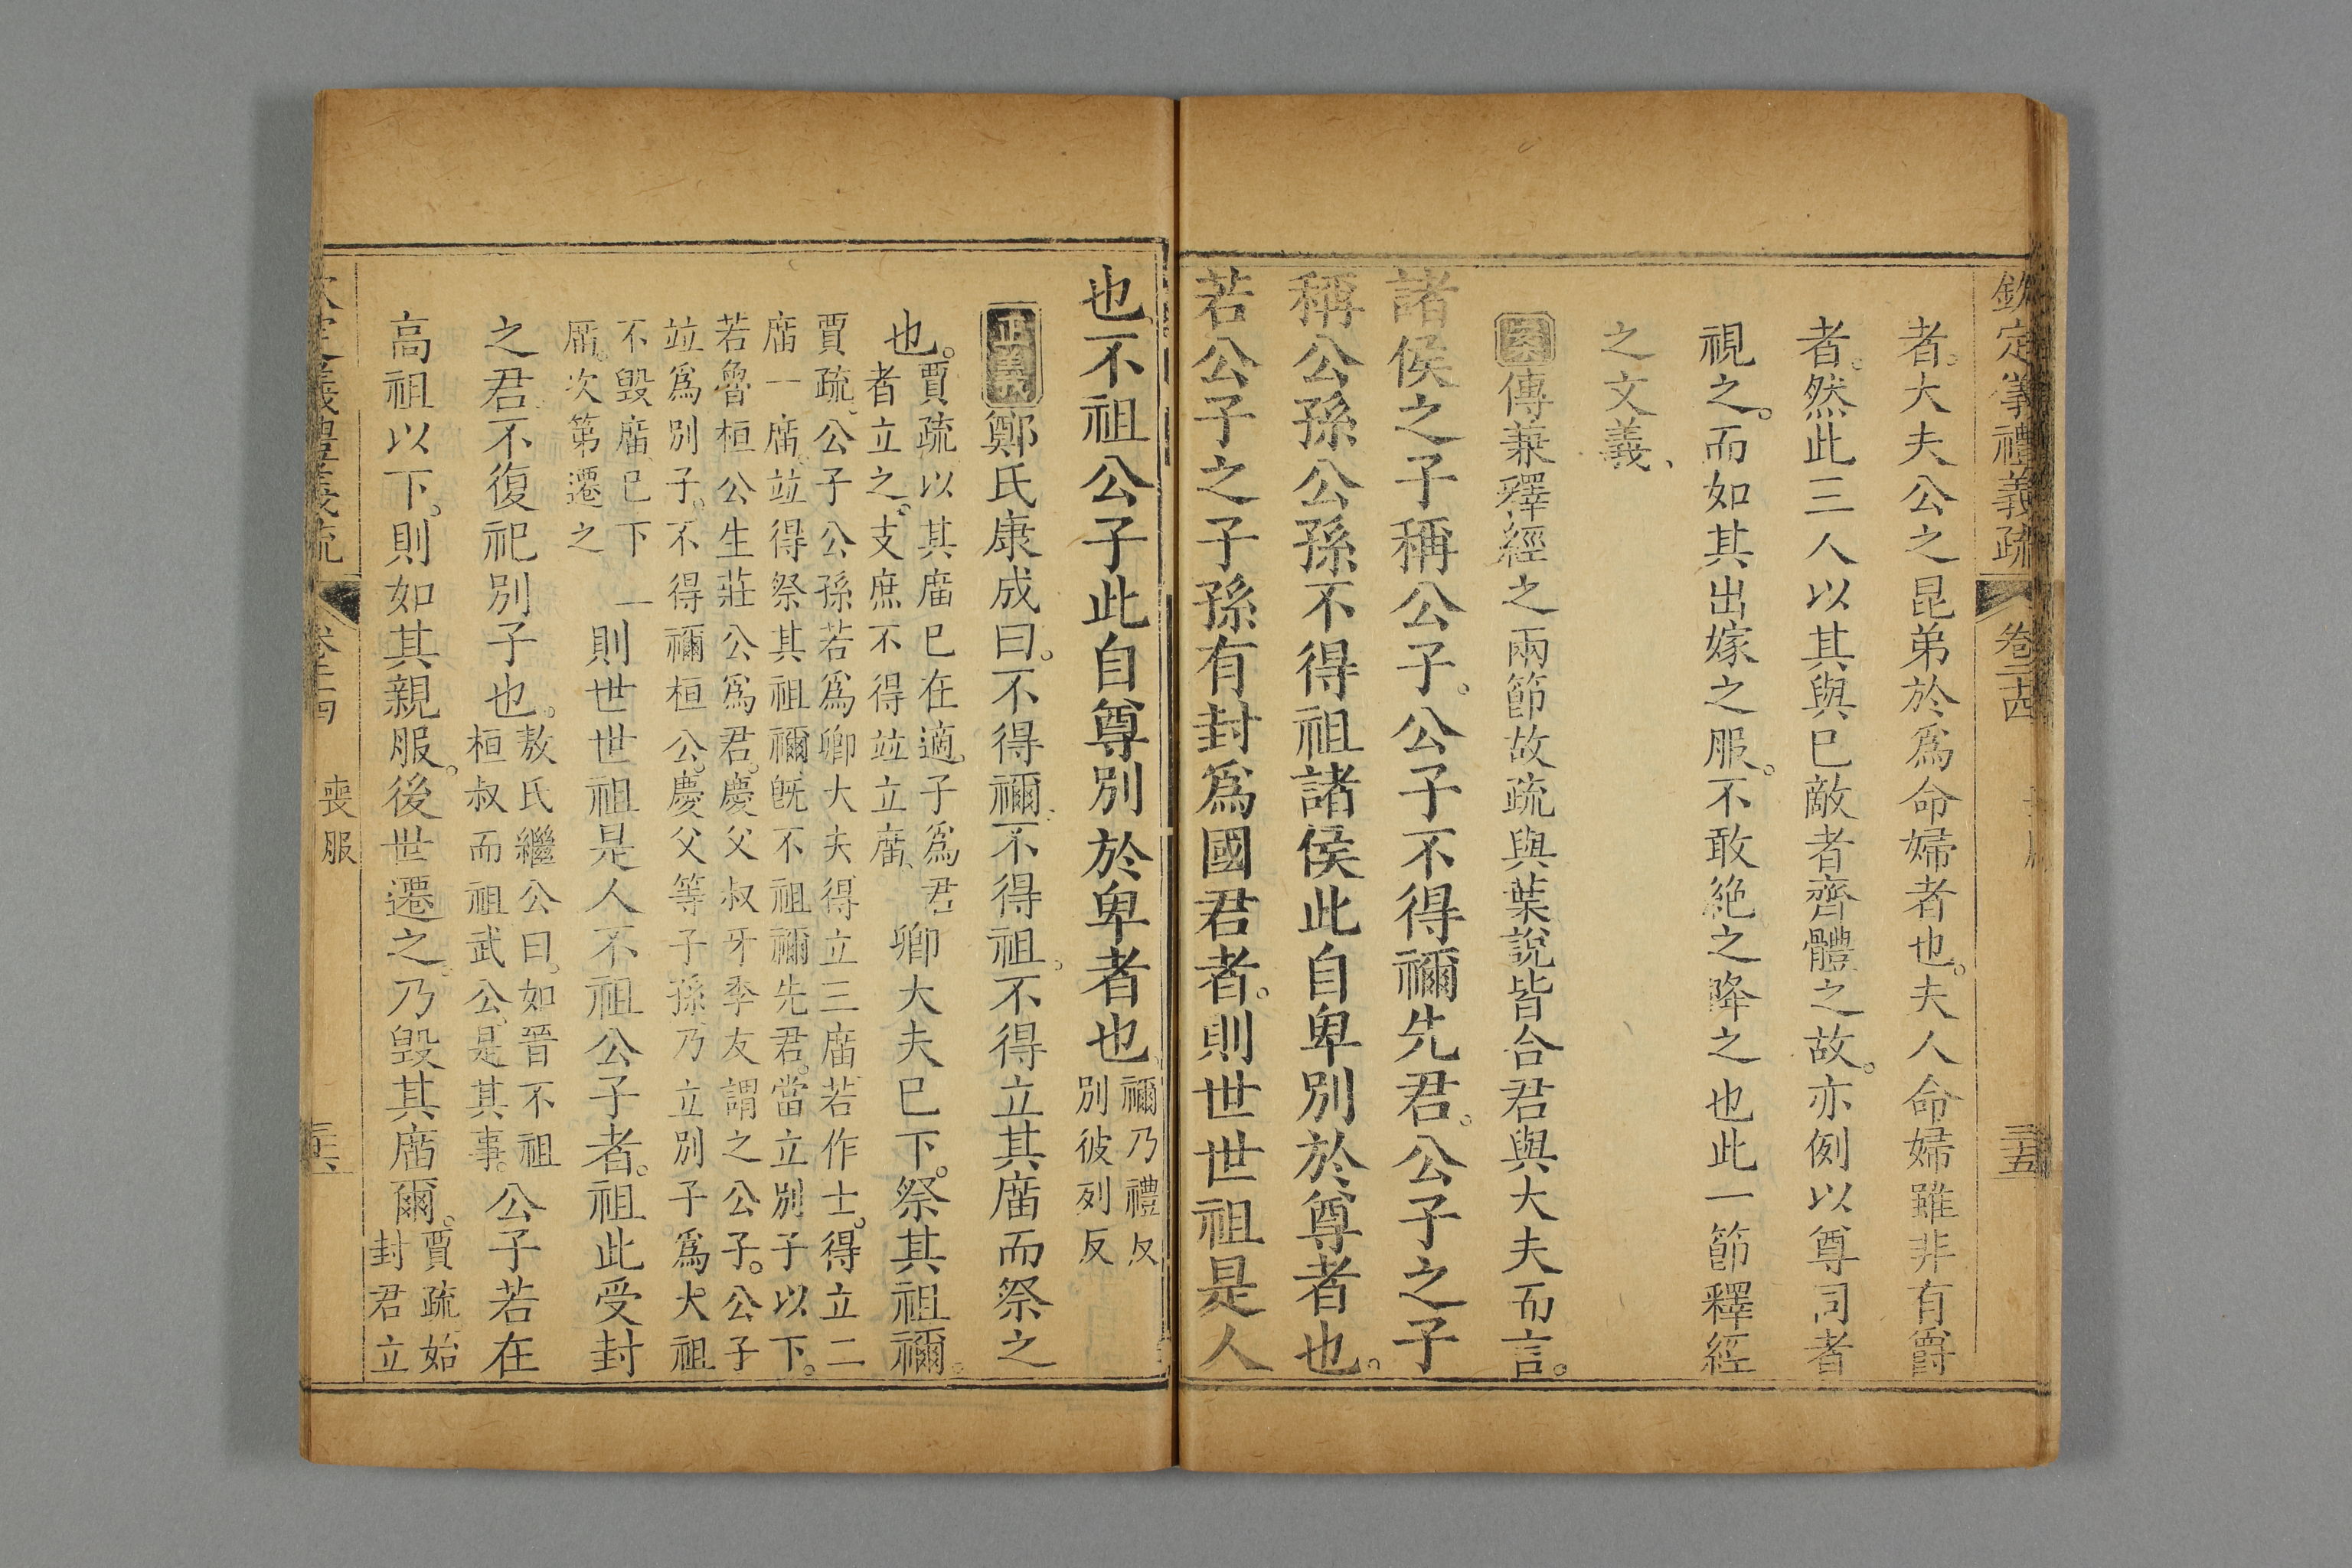 欽定儀禮義疏 卷二十四 三十五
者。大夫公之昆弟於爲命婦者也。夫人命婦雖非有爵
者。然此三人以其與已敵者齊體之故。亦例以尊同者
視之。而如其出嫁之服。不敢絶之降之也此一節釋經
之文義、
案傳蒹釋經之兩節故疏與葉說皆合君與大夫而言。
諸侯之子稱公子。公子不得禰先君。公子之子
稱公孫公孫不得祖諸侯此自卑別於尊者也。
若公子之子孫有封爲國君者。則世世祖是人
也不祖公子此自尊別於卑者也 禰乃禮反
別彼列反
正義鄭氏康成曰。不得禰不得祖。不得立其庿而祭之
也。 賈疏以其庿已在適。子爲君
者立之。支庶不得竝立庿、 卿大夫已下。祭其祖禰。
賈疏。公子公孫若爲卿大夫得立三庿若作士。得立二
庿一庿。竝得祭其祖禰既不祖禰先君。當立別子以下。
若魯桓公生莊公爲君。慶父叔牙季友謂之公子。公子
竝爲別子。不得禰桓公。慶父等子孫乃立別子爲大祖
不毀庿、已下一
庿。次第遷之 則世世祖是人不祖公子者。祖此受封
之君不復祀別子也。 敖氏繼公曰。如晉不祖
桓叔而祖武公。是其事。 公子若在
高祖以下。則如其親服。後世遷之。乃毀其庿爾。 賈疏始
封君立
欽定儀禮義疏 卷二十四 喪服 三十六